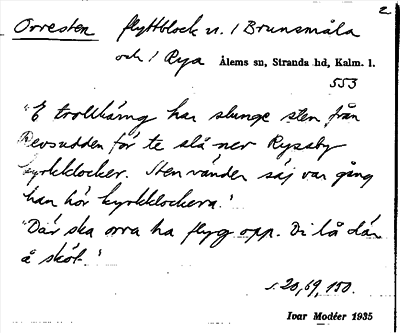 2
Orresten flyttblock n. i Brunsmåla
och i Rya Ålems sn, Stranda hd, Kalm. l.
553
"E trollkäring har slunge sten från
Revsudden för te slå ner Ryssby
kyrkklocker. Sten vänder säj var gång
han hör kyrkklockera."
"Där ska orra ha flyg opp. Di lå där
å sköt."
s. 20, 69, 150.
Ivar Modéer 1935